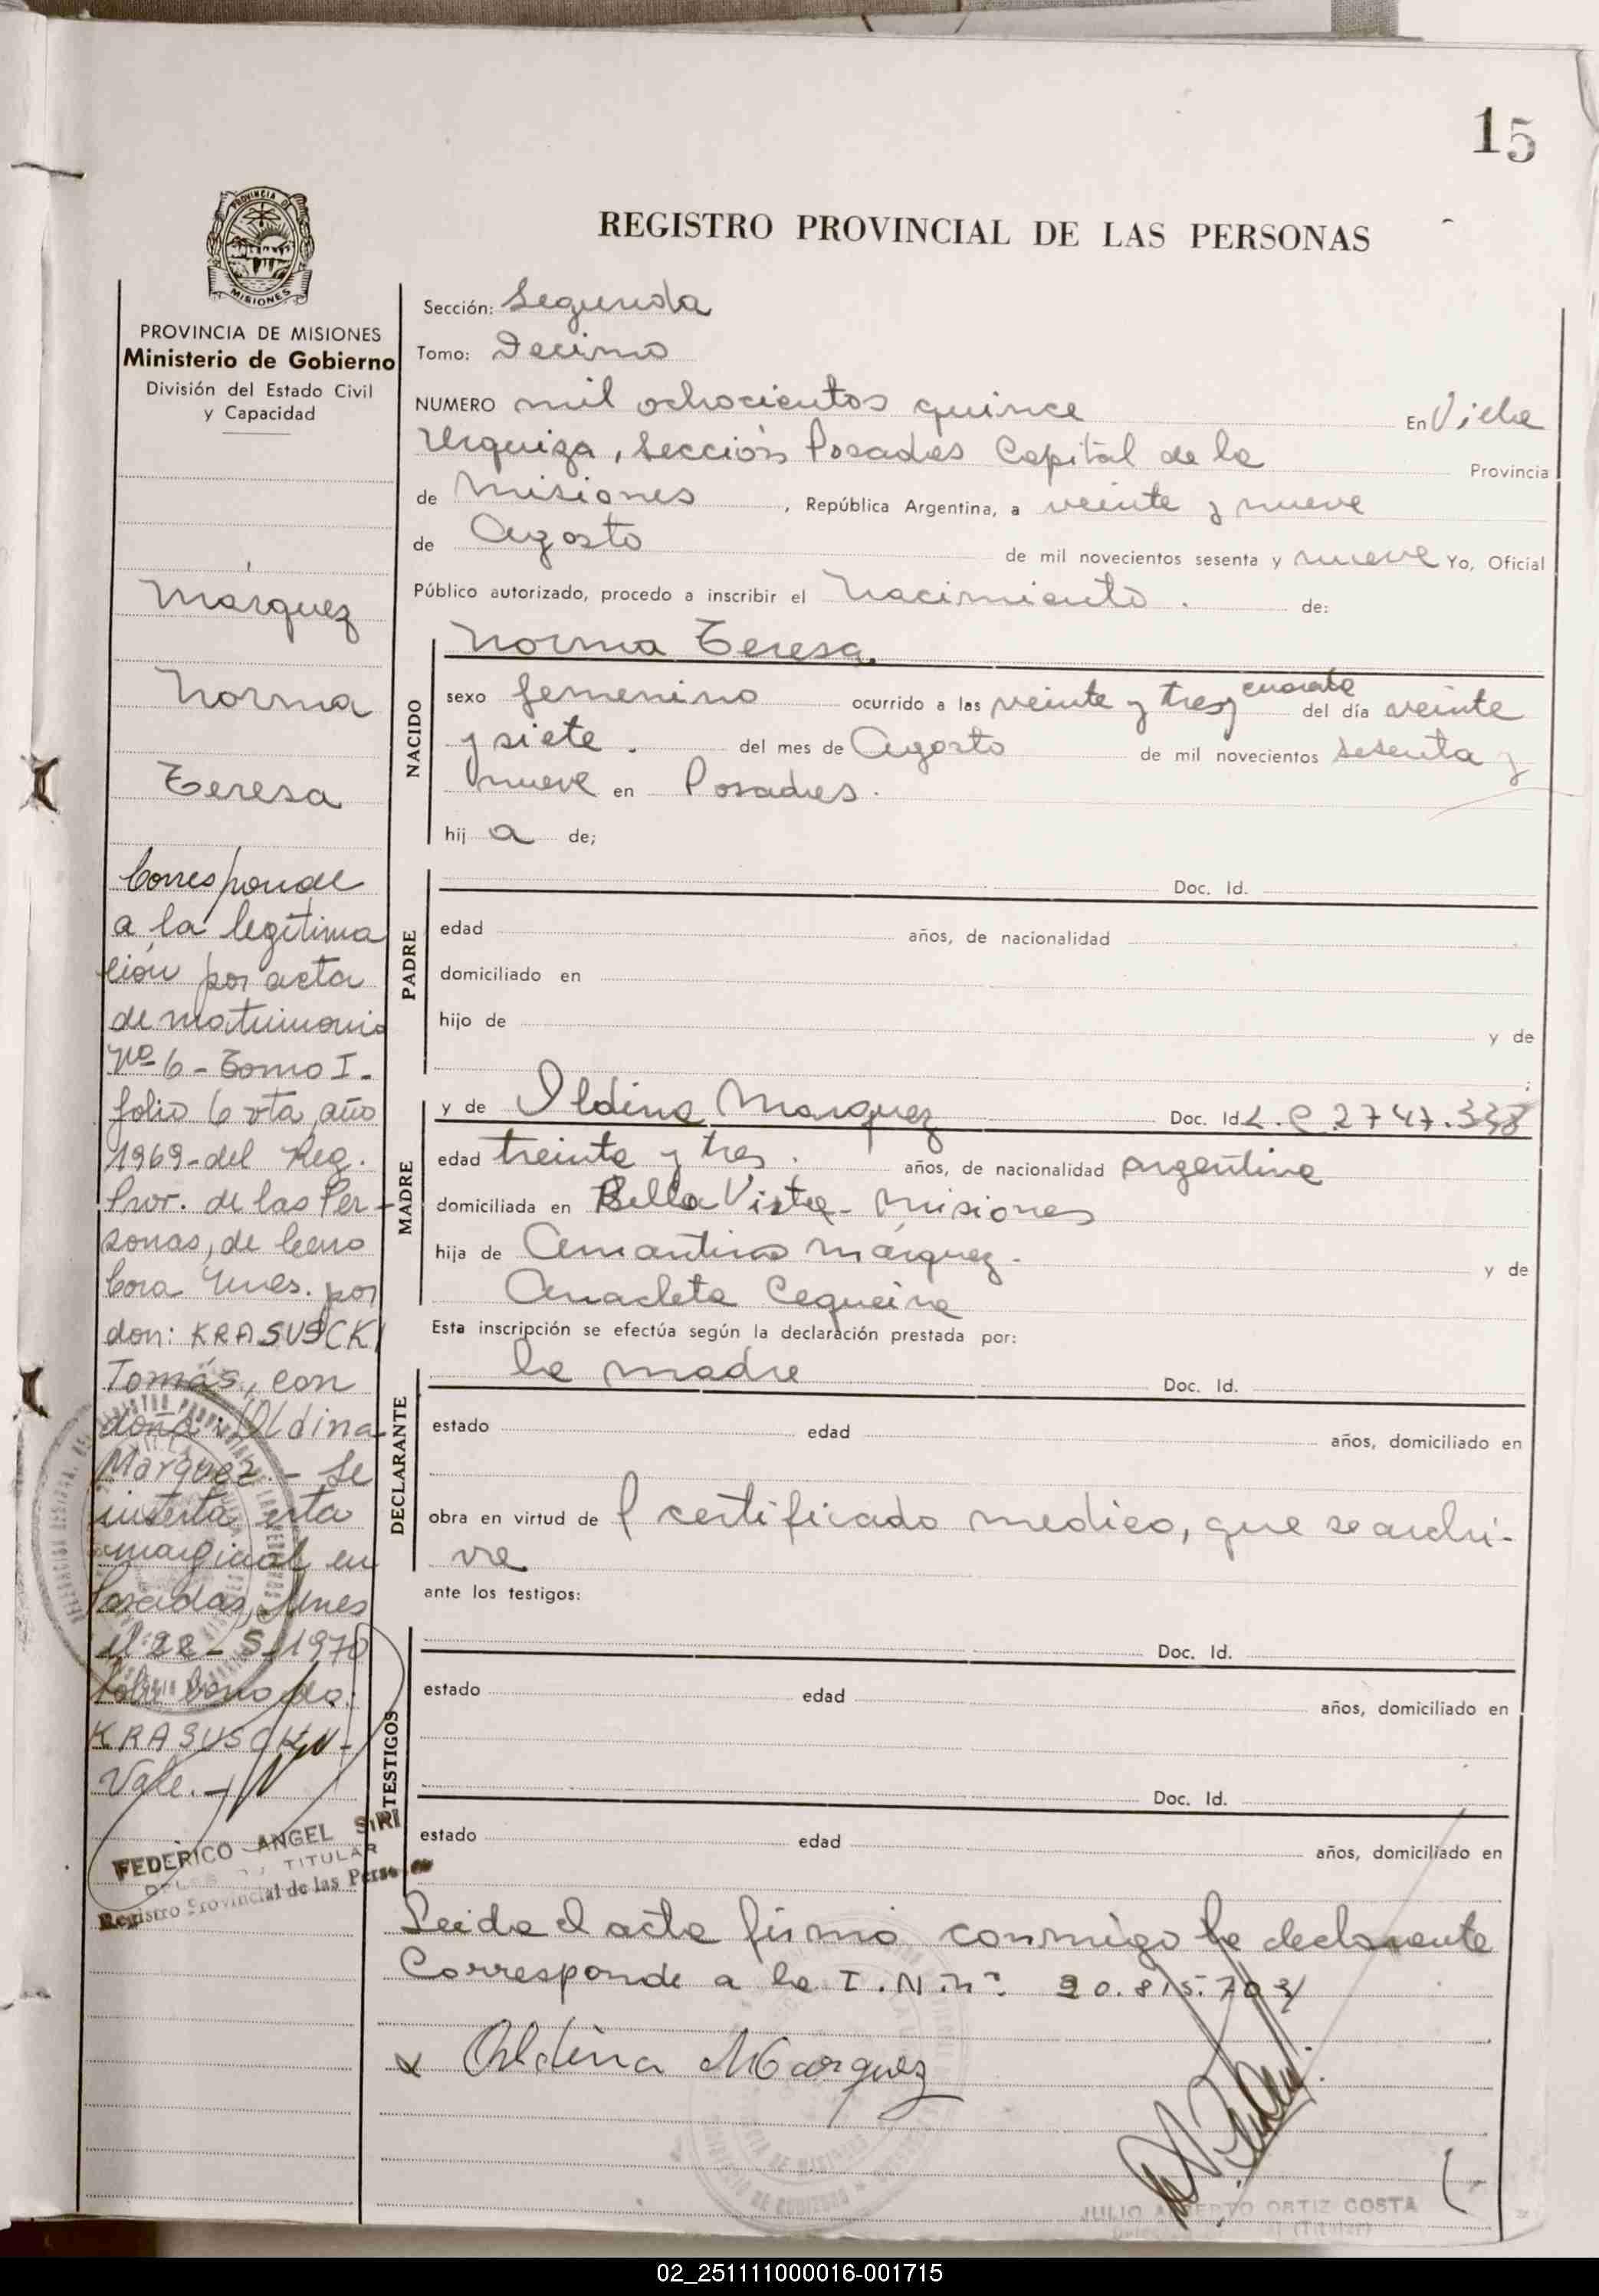 15
PROVINCIA DE
MISIONES
REGISTRO PROVINCIAL DE LAS PERSONAS
PROVINCIA DE MISIONES
Ministerio de Gobierno
División del Estado Civil
y Capacidad
Marquez
Norma
Teresa
Corresponde
a la legitima
ción por acta
de matrimonio
Nº 6 - Tomo I -
folio 6 vta, año
1969 - del Reg.
Prov. de las Per-
sonas, de Cerro
Cora Mnes. por
don: KRASUSCKI
Tomás, con
doña: Oldina
Marquez. - Se
inserta esta
marginal en
Posadas, Mnes
el 22-5-1970
KRASUSCKI
Vale. -
FEDERICO ANGEL SIRI
TITULAR
Registro Provincial de las Personas
Sección: Segunda
Tomo: Decimo
NUMERO mil ochocientos quince En Villa
Urquiza, Sección Posadas Capital de la Provincia
de Misiones , República Argentina, a veinte y nueve
de Agosto de mil novecientos sesenta y nueve Yo, Oficial
Público autorizado, procedo a inscribir el Nacimiento. de:
NACIDO
Norma Teresa.
cuarenta
sexo femenino ocurrido a las veinte y tres y del día veinte
y siete. del mes de Agosto de mil novecientos sesenta y
nueve en Posadas.
hij a de;
PADRE
Doc. Id.
edad años, de nacionalidad
domiciliado en
hijo de y de
;
MADRE
y de Ildina Marquez Doc. Id L.C 2747.338
edad treinta y tres. años, de nacionalidad argentina
domiciliada en Bella Vista - Misiones
hija de Amantino Márquez. y de
Anacleta Cequeira
Esta inscripción se efectúa según la declaración prestada por:
DECLARANTE
la madre Doc. Id.
estado edad años, domiciliado en
obra en virtud de l certificado medico, que se archi-
va
ante los testigos:
TESTIGOS
Doc. Id.
estado edad años, domiciliado en
Doc. Id.
estado edad años, domiciliado en
Leida el acta firma conmigo la declarante
Corresponde a la I.N.nº 20.815.70
x Oldina Marquez
JULIO ALBERTO ORTIZ COSTA
(Titular)
02_251111000016-001715